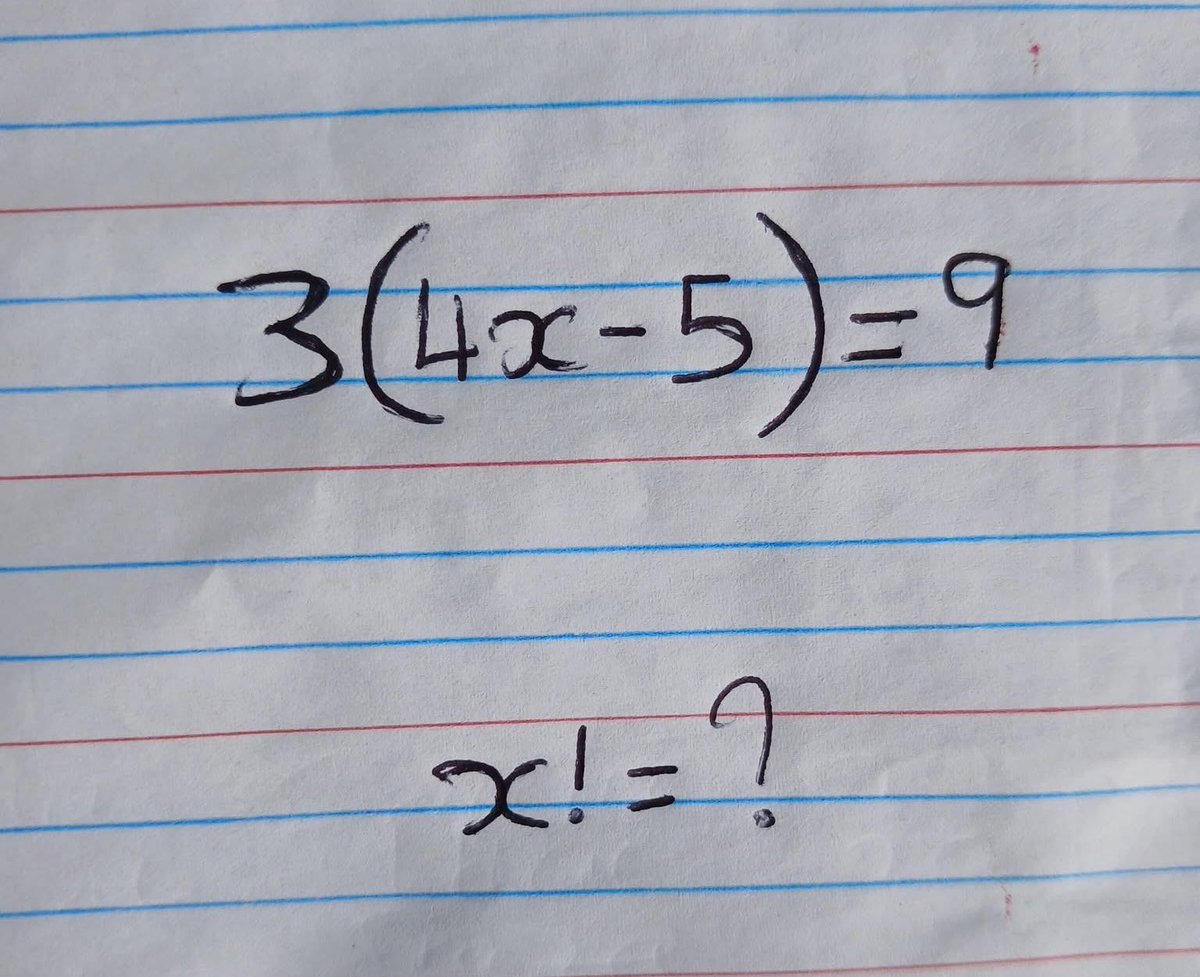 3(4x-5)=9
x!=?